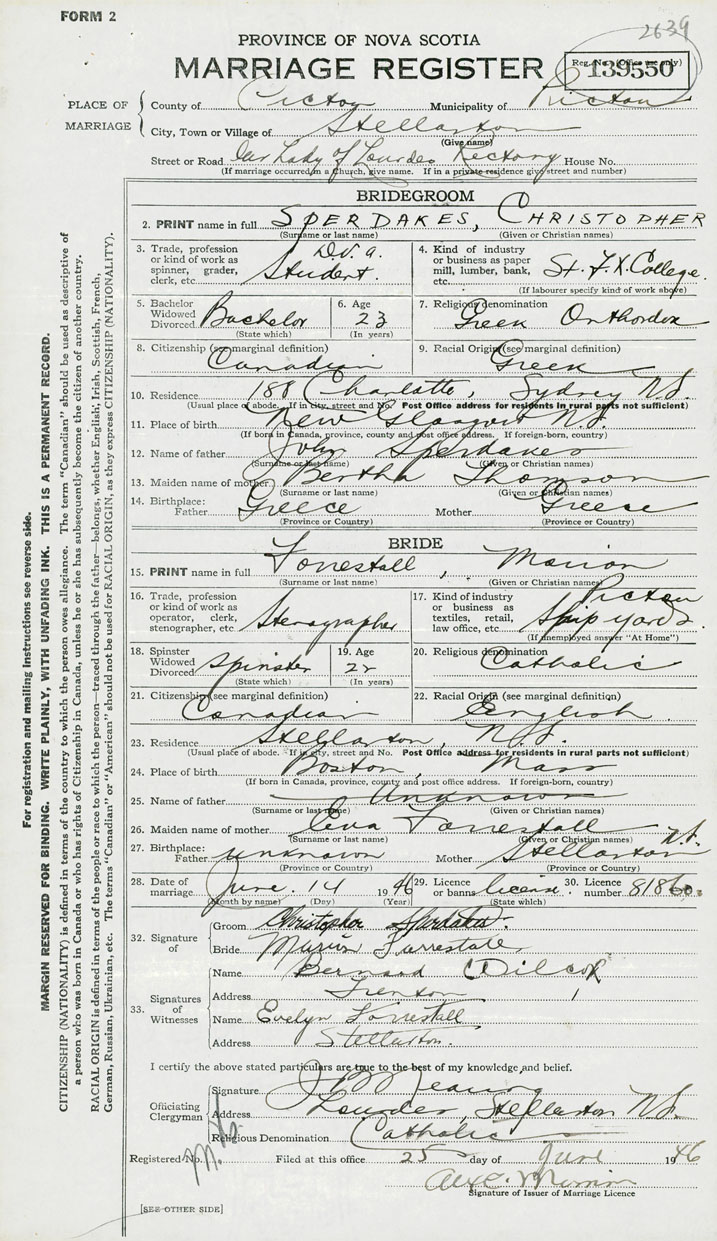 FORM 2
2639
PROVINCE OF NOVA SCOTIA
MARRIAGE REGISTER
Reg. No. (Office use only)
139550
PLACE OF MARRIAGE
County of Pictou Municipality of Pictou
City, Town or Village of Stellarton
(Give name)
Street or Road Our Lady of Lourdes Rectory House No.
(If marriage occurred in a Church, give name. If in a private residence give street and number)
BRIDEGROOM
2. PRINT name in full SPERDAKES, CHRISTOPHER
(Surname or last name) (Given or Christian names)
3. Trade, profession or kind of work as spinner, grader, clerk, etc. D.V.A. Student.
4. Kind of industry or business as paper mill, lumber, bank, etc. St. F. X. College.
(If labourer specify kind of work above)
5. Bachelor Widowed Divorced Bachelor
(State which)
6. Age 23
(In years)
7. Religious denomination Greek Orthordox
8. Citizenship (see marginal definition) Canadian
9. Racial Origin (see marginal definition) Greek
10. Residence 188 Charlotte, Sydney N.S.
(Usual place of abode. If in city, street and No. Post Office address for residents in rural parts not sufficient)
11. Place of birth New Glasgow N.S.
(If born in Canada, province, county and post office address. If foreign-born, country)
12. Name of father John Sperdakes
(Surname or last name) (Given or Christian names)
13. Maiden name of mother Bertha Thomson
(Surname or last name) (Given or Christian names)
14. Birthplace: Father Greece Mother Greece
(Province or Country) (Province or Country)
BRIDE
15. PRINT name in full Forrestall, Marion
(Surname or last name) (Given or Christian names)
16. Trade, profession or kind of work as operator, clerk, stenographer, etc. Stenographer
17. Kind of industry or business as textiles, retail, law office, etc. Pictou Ship yards.
(If unemployed answer "At Home")
18. Spinster Widowed Divorced Spinster
(State which)
19. Age 22
(In years)
20. Religious denomination Catholic
21. Citizenship (see marginal definition) Canadian
22. Racial Origin (see marginal definition) English
23. Residence Stellarton, N.S.
(Usual place of abode. If in city, street and No. Post Office address for residents in rural parts not sufficient)
24. Place of birth Boston, Mass
(If born in Canada, province, county and post office address. If foreign-born, country)
25. Name of father Unknown
(Surname or last name) (Given or Christian names)
26. Maiden name of mother Eva Forrestall
(Surname or last name) (Given or Christian names)
27. Birthplace: Father unknown Mother Stellarton N.S.
(Province or Country) (Province or Country)
28. Date of marriage June 14 1946
(Month by name) (Day) (Year)
29. Licence or banns license
(State which)
30. Licence number 81860
32. Signature of
Groom Christopher Sperdakes.
Bride Marion Forrestall
33. Signatures of Witnesses
Name Bernard Wilcox
Address Trenton
Name Evelyn Forrestall
Address Stellarton.
I certify the above stated particulars are true to the best of my knowledge and belief.
Officiating Clergyman
Signature
Address Lourdes, Stellarton N.S.
Religious Denomination Catholic
Registered No. Filed at this office 25 day of June 1946
Signature of Issuer of Marriage Licence
[SEE OTHER SIDE]
For registration and mailing instructions see reverse side.
MARGIN RESERVED FOR BINDING. WRITE PLAINLY, WITH UNFADING INK. THIS IS A PERMANENT RECORD.
CITIZENSHIP (NATIONALITY) is defined in terms of the country to which the person owes allegiance. The term "Canadian" should be used as descriptive of
a person who was born in Canada or who has rights of Citizenship in Canada, unless he or she has subsequently become the citizen of another country.
RACIAL ORIGIN is defined in terms of the people or race to which the person—traced through the father—belongs, whether English, Irish, Scottish, French,
German, Russian, Ukrainian, etc. The terms "Canadian" or "American" should not be used for RACIAL ORIGIN, as they express CITIZENSHIP (NATIONALITY).